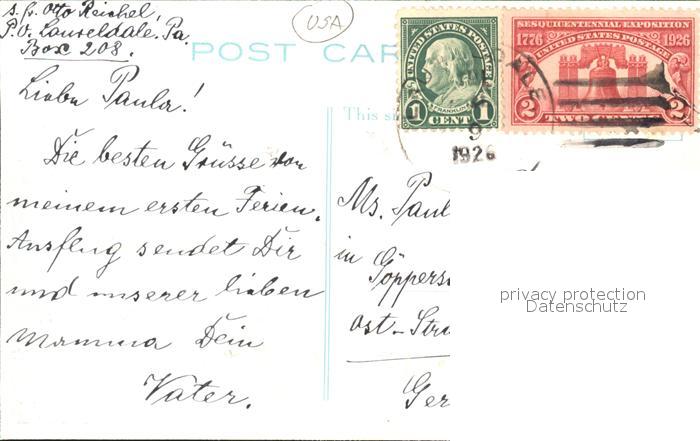 s. fr. Otto Reichel,
P.O. Laureldale, Pa
Box 208.
USA
POST CAR
Liebe Paula!
Die besten Grüsse von
meinem ersten Ferien-
Ausflug sendet Dir
und unserer lieben
Mamma Dein
Vater.
This s
UNITED STATES POSTAGE
FRANKLIN
1 CENT 1
SESQUICENTENNIAL EXPOSITION
1776 1926
UNITED STATES POSTAGE
2 TWO CENTS 2
DALE
9
1926
Ms. Paul
in Göppers
Ost-Str
Ger
privacy protection
Datenschutz